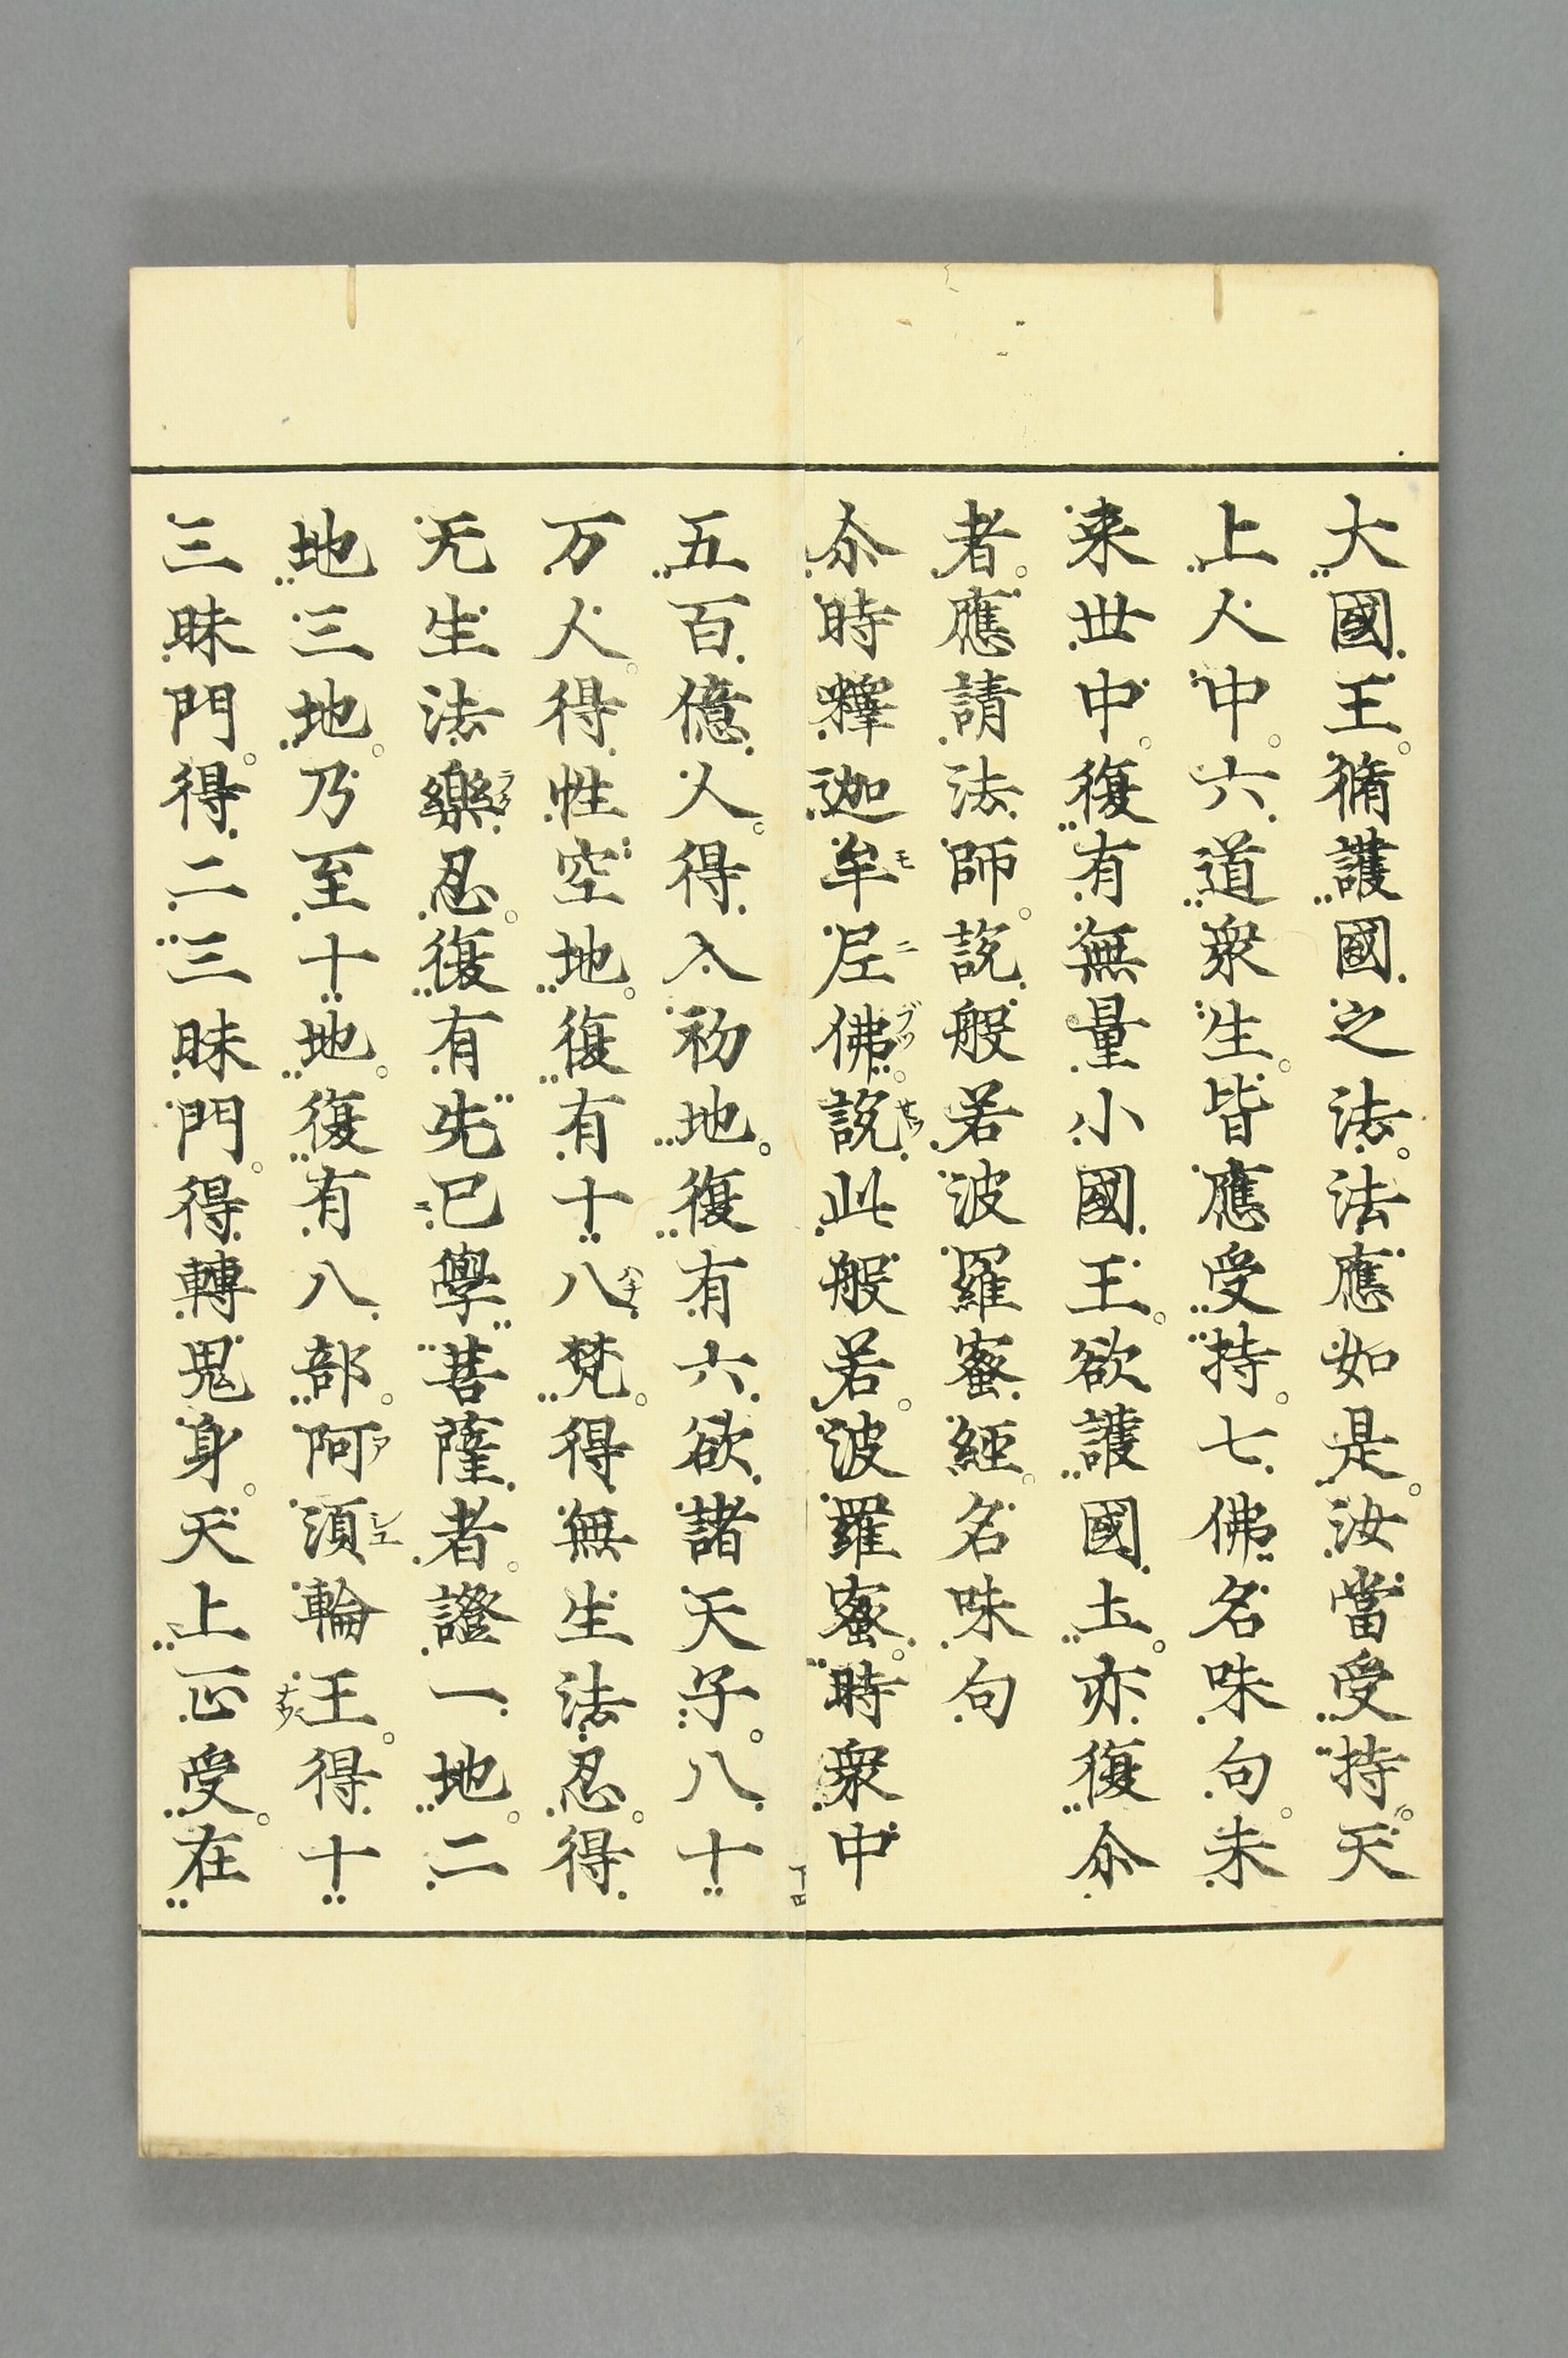 大國王。脩護國之法。法應如是。汝當受持。天
上人中。六道衆生。皆應受持。七佛名味句。未
来世中。復有無量小國王。欲護國土。亦復尒
者。應請法師。說般若波羅蜜經。名味句
尒時釋迦牟尼佛。說此般若。波羅蜜。時衆中
五百億人。得入初地。復有六欲諸天子。八十
万人。得性空地。復有十八梵。得無生法忍。得
无生法樂忍。復有先已學菩薩者。證一地。二
地三地。乃至十地。復有八部。阿須輪王。得十
三昧門。得二三昧門。得轉鬼身。天上正受。在